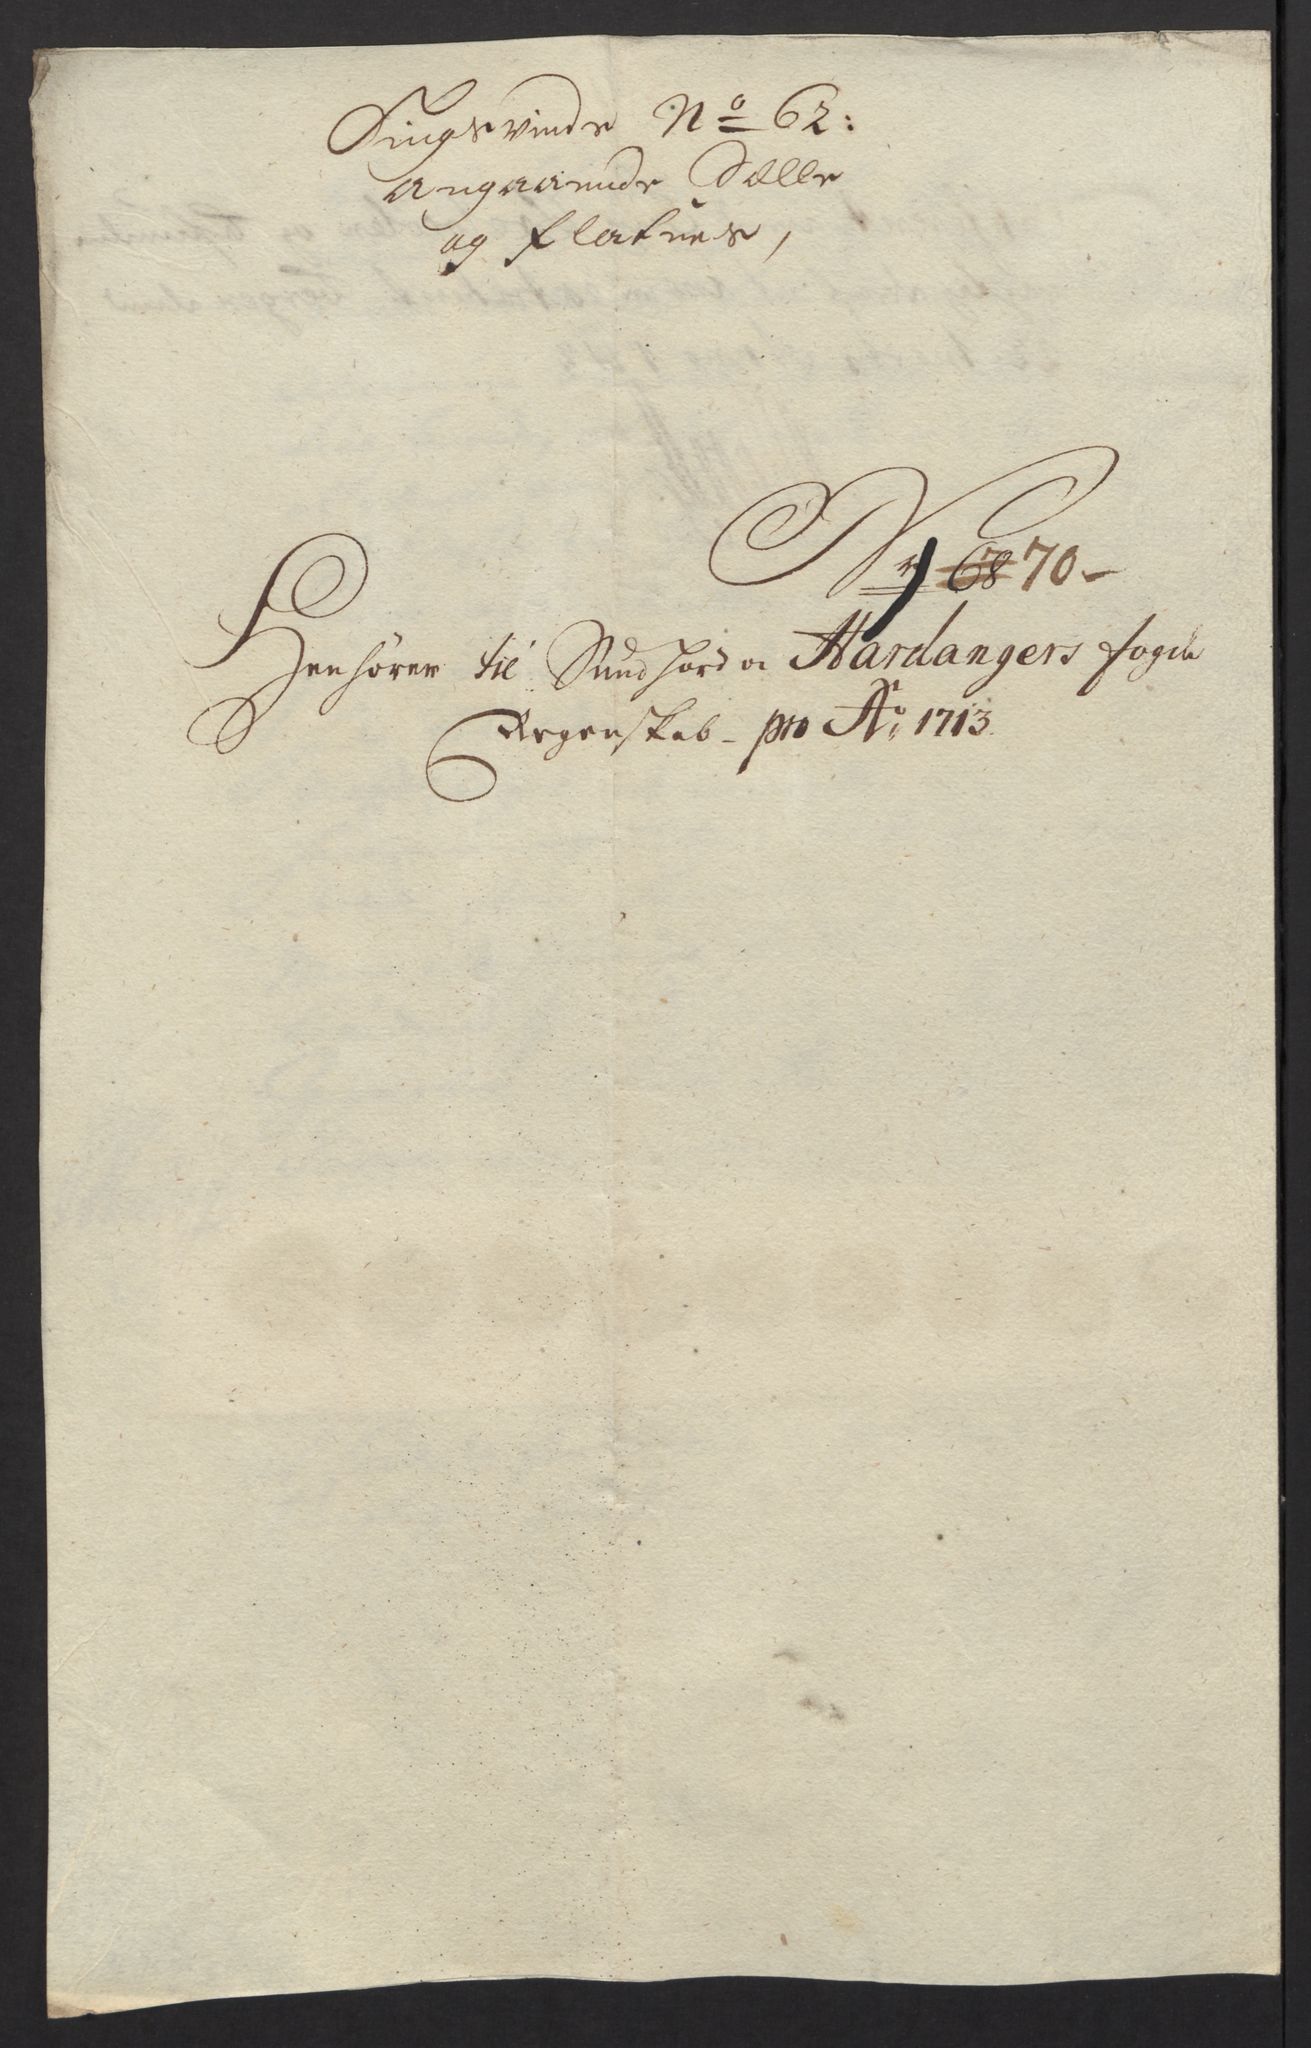 Tingsvinde No 62:
angaaende Sælle
og Flatnes,
Nr 68 70-
Henhører til Sundhord oc Hardangers fogde
Regenskab - pro Ao 1713